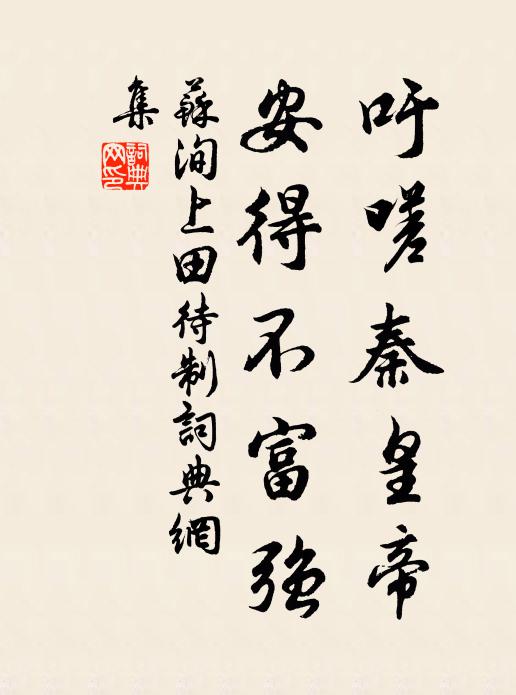 吁嗟秦皇帝
安得不富強
蘇洵上田待制詞典網
集
詞典
网印